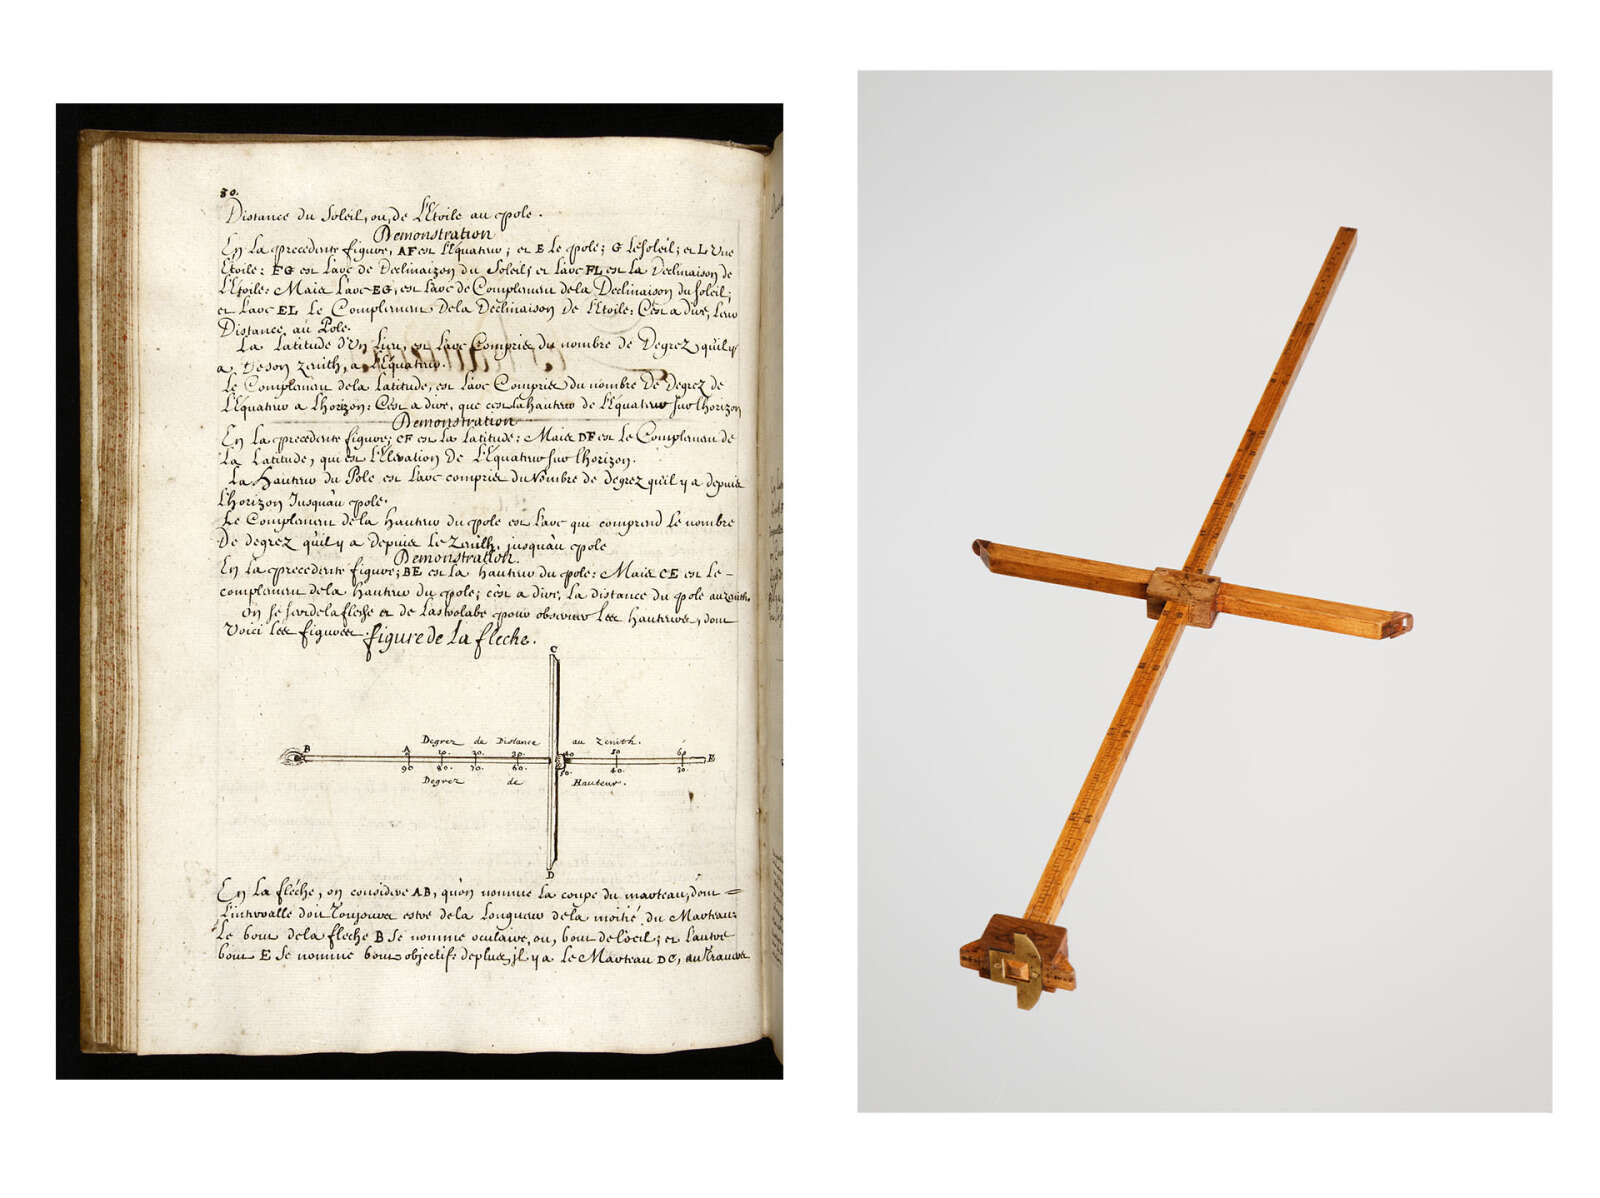 80.
Distance du Soleil, ou, de L'Etoile au pole.
Demonstration
En La precedente figure, AF est l'Equateur; et E Le pole; G Le soleil; et L Une
Etoile: FG est L'arc de Declinaizon du Soleil; et L'arc FL est La Declinaison de
L'Etoile: Mais L'arc EG, est L'arc de Complement de la Declinaison du Soleil;
et L'arc EL Le Complement De la Declinaison De L'Etoile: C'est a dire, Leur
Distance au Pole.
La Latitude d'Un Lieu, est L'arc Compris du nombre de Degrez qu'il y
a De son zenith, a l'Equateur.
Le Complement de la Latitude, est L'arc Compris du nombre De Degrez de
L'Equateur a L'horizon: C'est a dire, que c'est la hauteur de L'Equateur sur L'horizon
Demonstration
En La precedente figure; CF est La Latitude: Mais DF est Le Complement de
La Latitude, qui est L'Elevation de L'Equateur sur L'horizon.
La Hauteur du Pole, est L'arc compris du Nombre de degrez qu'il y a depuis
L'horizon Jusqu'au pole.
Le Complement de la hauteur du pole est L'arc qui comprend Le nombre
De degrez qu'il y a depuis Le Zenith, jusqu'au pole
Demonstration.
En La precedente figure; BE est La hauteur du pole: Mais CE est Le -
complement de la hauteur du pole; c'est a dire, La distance du pole au zenith.
On se sert de la fleche et de L'astrolabe pour observer Les hauteurs, dont
Voici Les figures. figure de La fleche.
C
B A Degrez de Distance au Zenith.
10. 20. 30. 40 50 60 E
90 80. 70. 60. 50. 40. 30.
Degrez de Hauteur.
D
En La fléche, on considere AB, qu'on nomme La coupe du marteau, dont =
L'intervalle doit Toujours estre de la Longueur de la moitié du Marteau:
Le bout de la fleche B se nomme oculaire, ou, bout de L'oeil; et L'autre
bout E se nomme bout objectif: de plus, il y a Le Marteau DC, au Travers